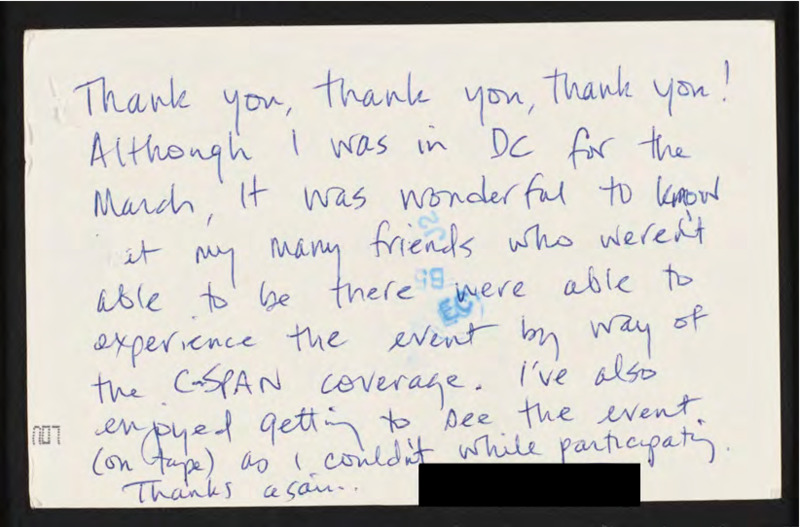 Thank you, thank you, thank you!
Although I was in DC for the
March, It was wonderful to know
at my many friends who weren't
able to be there were able to
experience the event by way of
the C-SPAN coverage. I've also
enjoyed getting to see the event
(on tape) as I couldn't while participatig.
Thanks again..